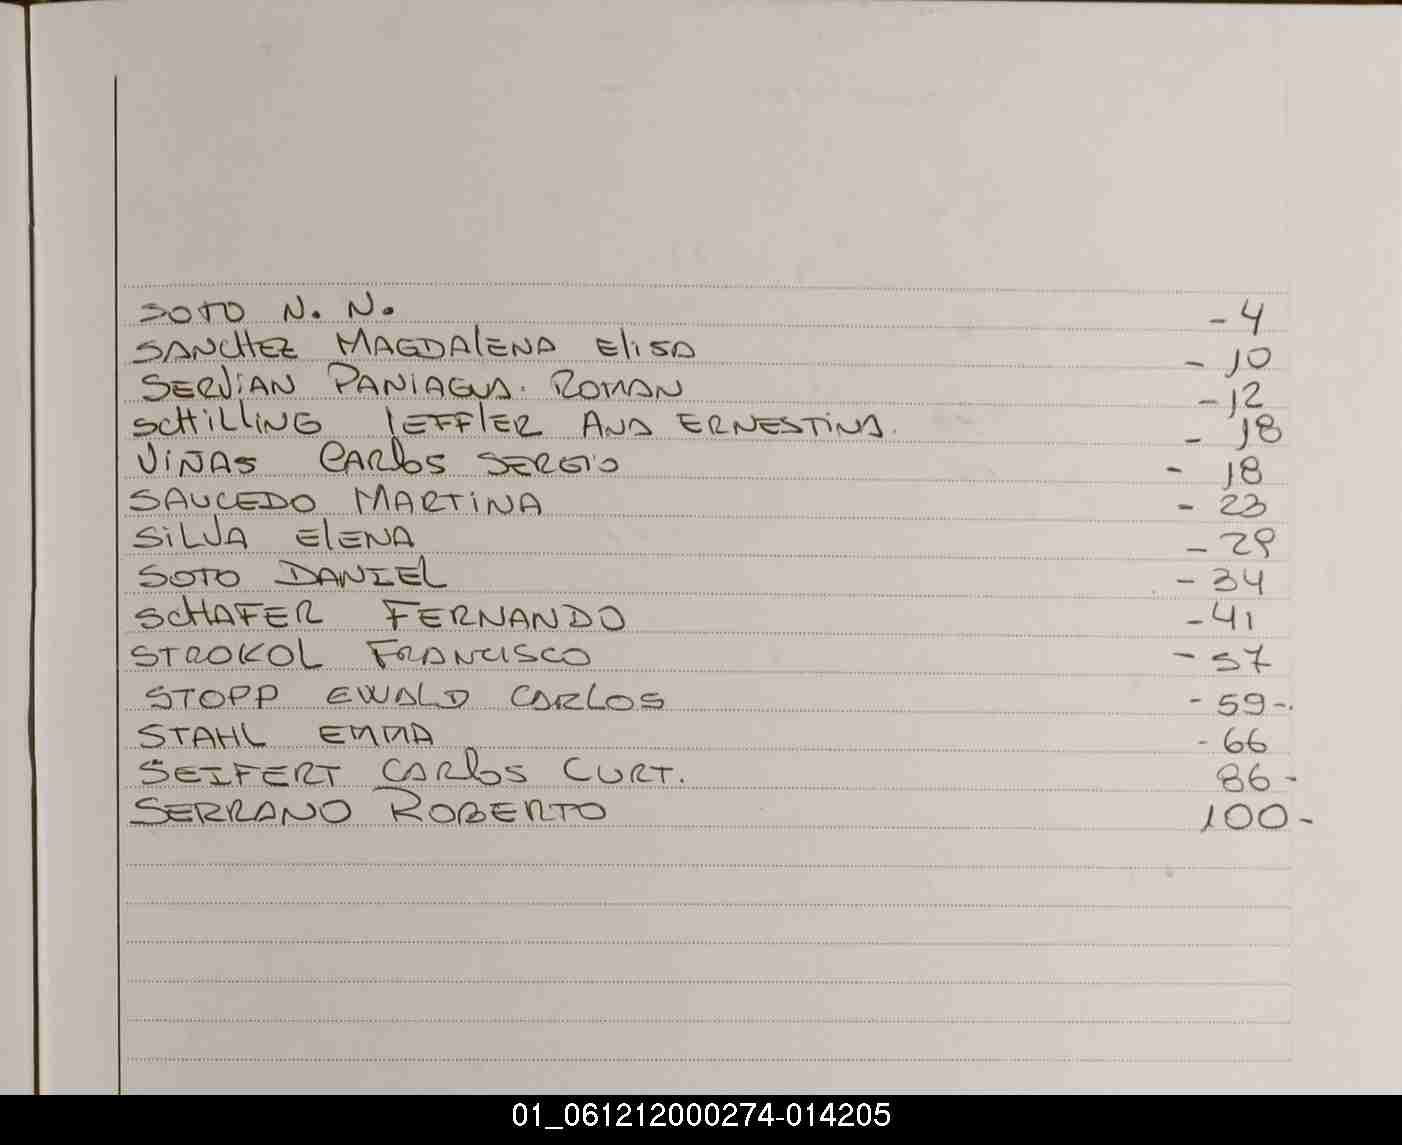 SOTO N. N. - 4
SANCHEZ MAGDALENA ELISA - 10
SERVIAN PANIAGUA. ROMAN - 12
SCHILLING LEFFLER ANA ERNESTINA. - 18
VIÑAS CARLOS SERGIO - 18
SAUCEDO MARTINA - 23
SILVA ELENA - 29
SOTO DANIEL - 34
SCHAFER FERNANDO - 41
STROKOL FRANCISCO - 57
STOPP EWALD CARLOS - 59-.
STAHL EMMA - 66
SEIFERT CARLOS CURT. 86-
SERRANO ROBERTO 100-
01_061212000274-014205